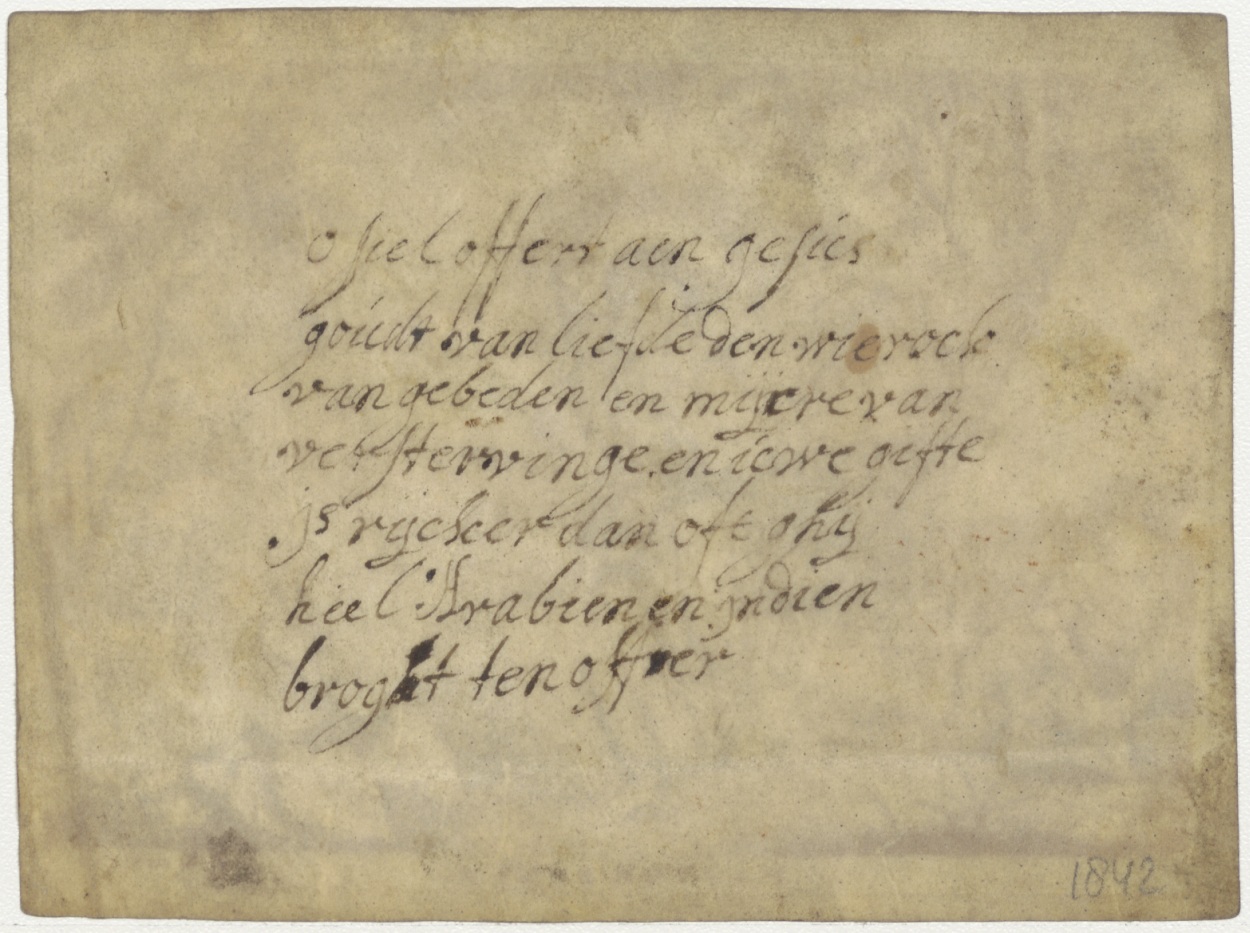 o siel offert aen gesús
goúdt van liefde den wierock
van gebeden en mijrre van
verstervinge en úwe gifte
js rijcker dan oft ghij
heel Arabien en jndien
broght ten offer
1842